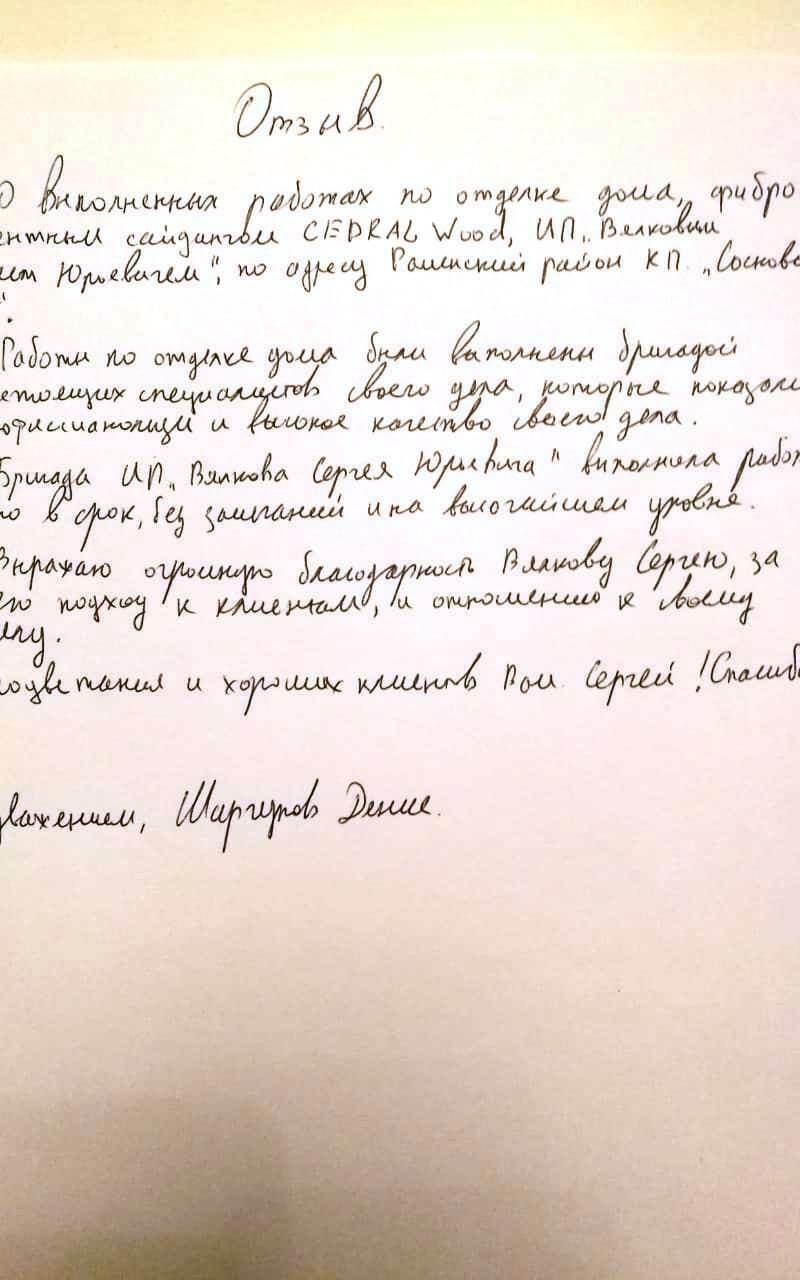 Отзыв.
О выполненных работах по отделке дома, фибро
ентным сайдингом CEDRAL Wood, ИП „Вялковым
ем Юрьевичем", по адресу Раменский район КП „Соснов
".
Работы по отделке дома были выполнены бригадой
стоящих специалистов своего дела, которые показали
офессионализм и высокое качество своего дела.
Бригада ИП „Вялкова Сергея Юрьевича" выполнила работ
о в срок, без замечаний и на высочайшем уровне.
Выражаю огромную благодарность Вялкову Сергею, за
его подход к клиентам, и отношению к своему
елу.
оцветания и хороших клиентов Вам Сергей! Спасибо
важением, Шаргунов Денис.